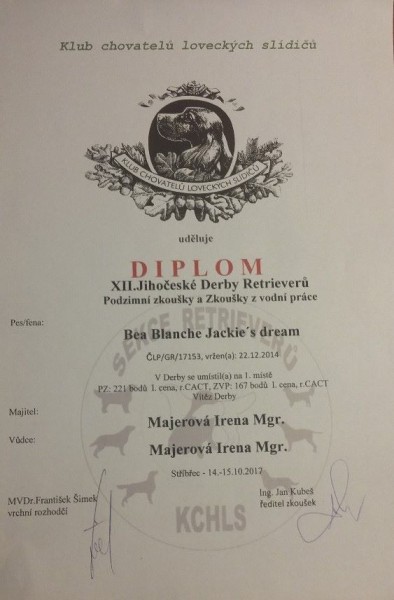 Klub chovatelů loveckých slídičů
KLUB CHOVATELŮ LOVECKÝCH SLÍDIČŮ
uděluje
DIPLOM
XII.Jihočeské Derby Retrieverů
Podzimní zkoušky a Zkoušky z vodní práce
Pes/fena:
Bea Blanche Jackie´s dream
ČLP/GR/17153, vržen(a): 22.12.2014
V Derby se umístil(a) na 1. místě
PZ: 221 bodů 1. cena, r.CACT, ZVP: 167 bodů 1. cena, r.CACT
Vítěz Derby
Majitel:
Majerová Irena Mgr.
Vůdce:
Majerová Irena Mgr.
Stříbřec - 14.-15.10.2017
MVDr.František Šimek
vrchní rozhodčí
Ing. Jan Kubeš
ředitel zkoušek
SEKCE RETRIEVERŮ
KCHLS